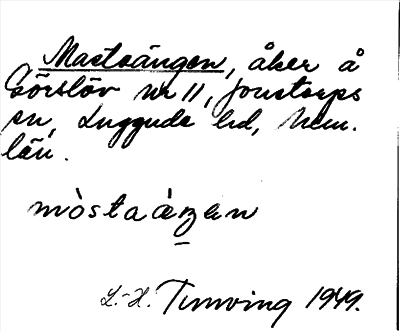 Mastaängen, åker å
Görslöv nr 11, Jonstorps
sn, Luggude hd, Mlm.
län.
mòstaáŋen
L.-H. Tunving 1949.